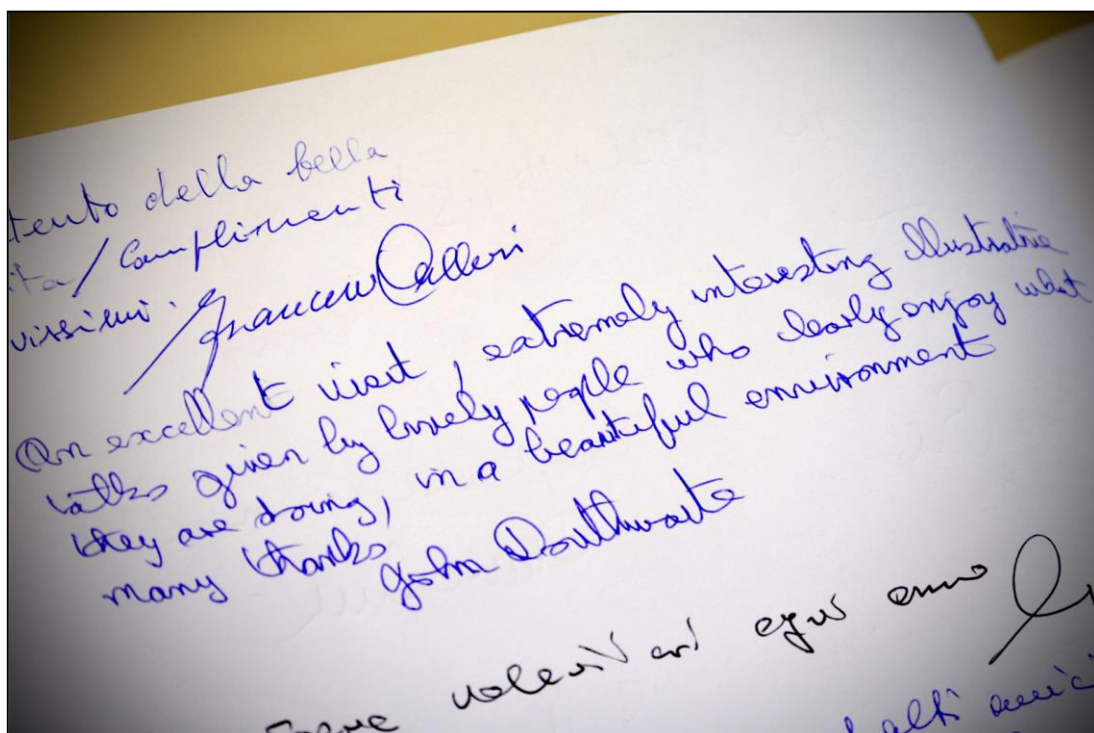 della bella
/ Complimenti
Francesco Calleri
An excellent visit, extremely interesting illustrative
talks given by lovely people who clearly enjoy what
they are doing, in a beautiful environment
many thanks
John Douthwaite
ogni anno